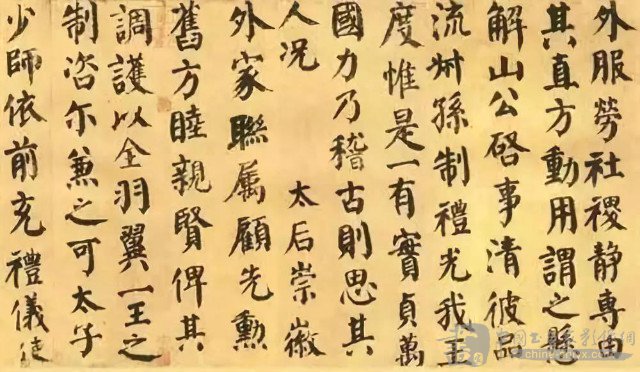 外服勞社稷靜專由
其直方動用謂之懸
解山公啓事清彼品
流叔孫制禮光我王
度惟是一有實貞萬
國力乃稽古則思其
人况 太后崇徽
外家聯屬顧先勳
舊方睦親賢俾其
調護以全羽翼一王之
制咨尔兼之可太子
少師依前充禮儀使